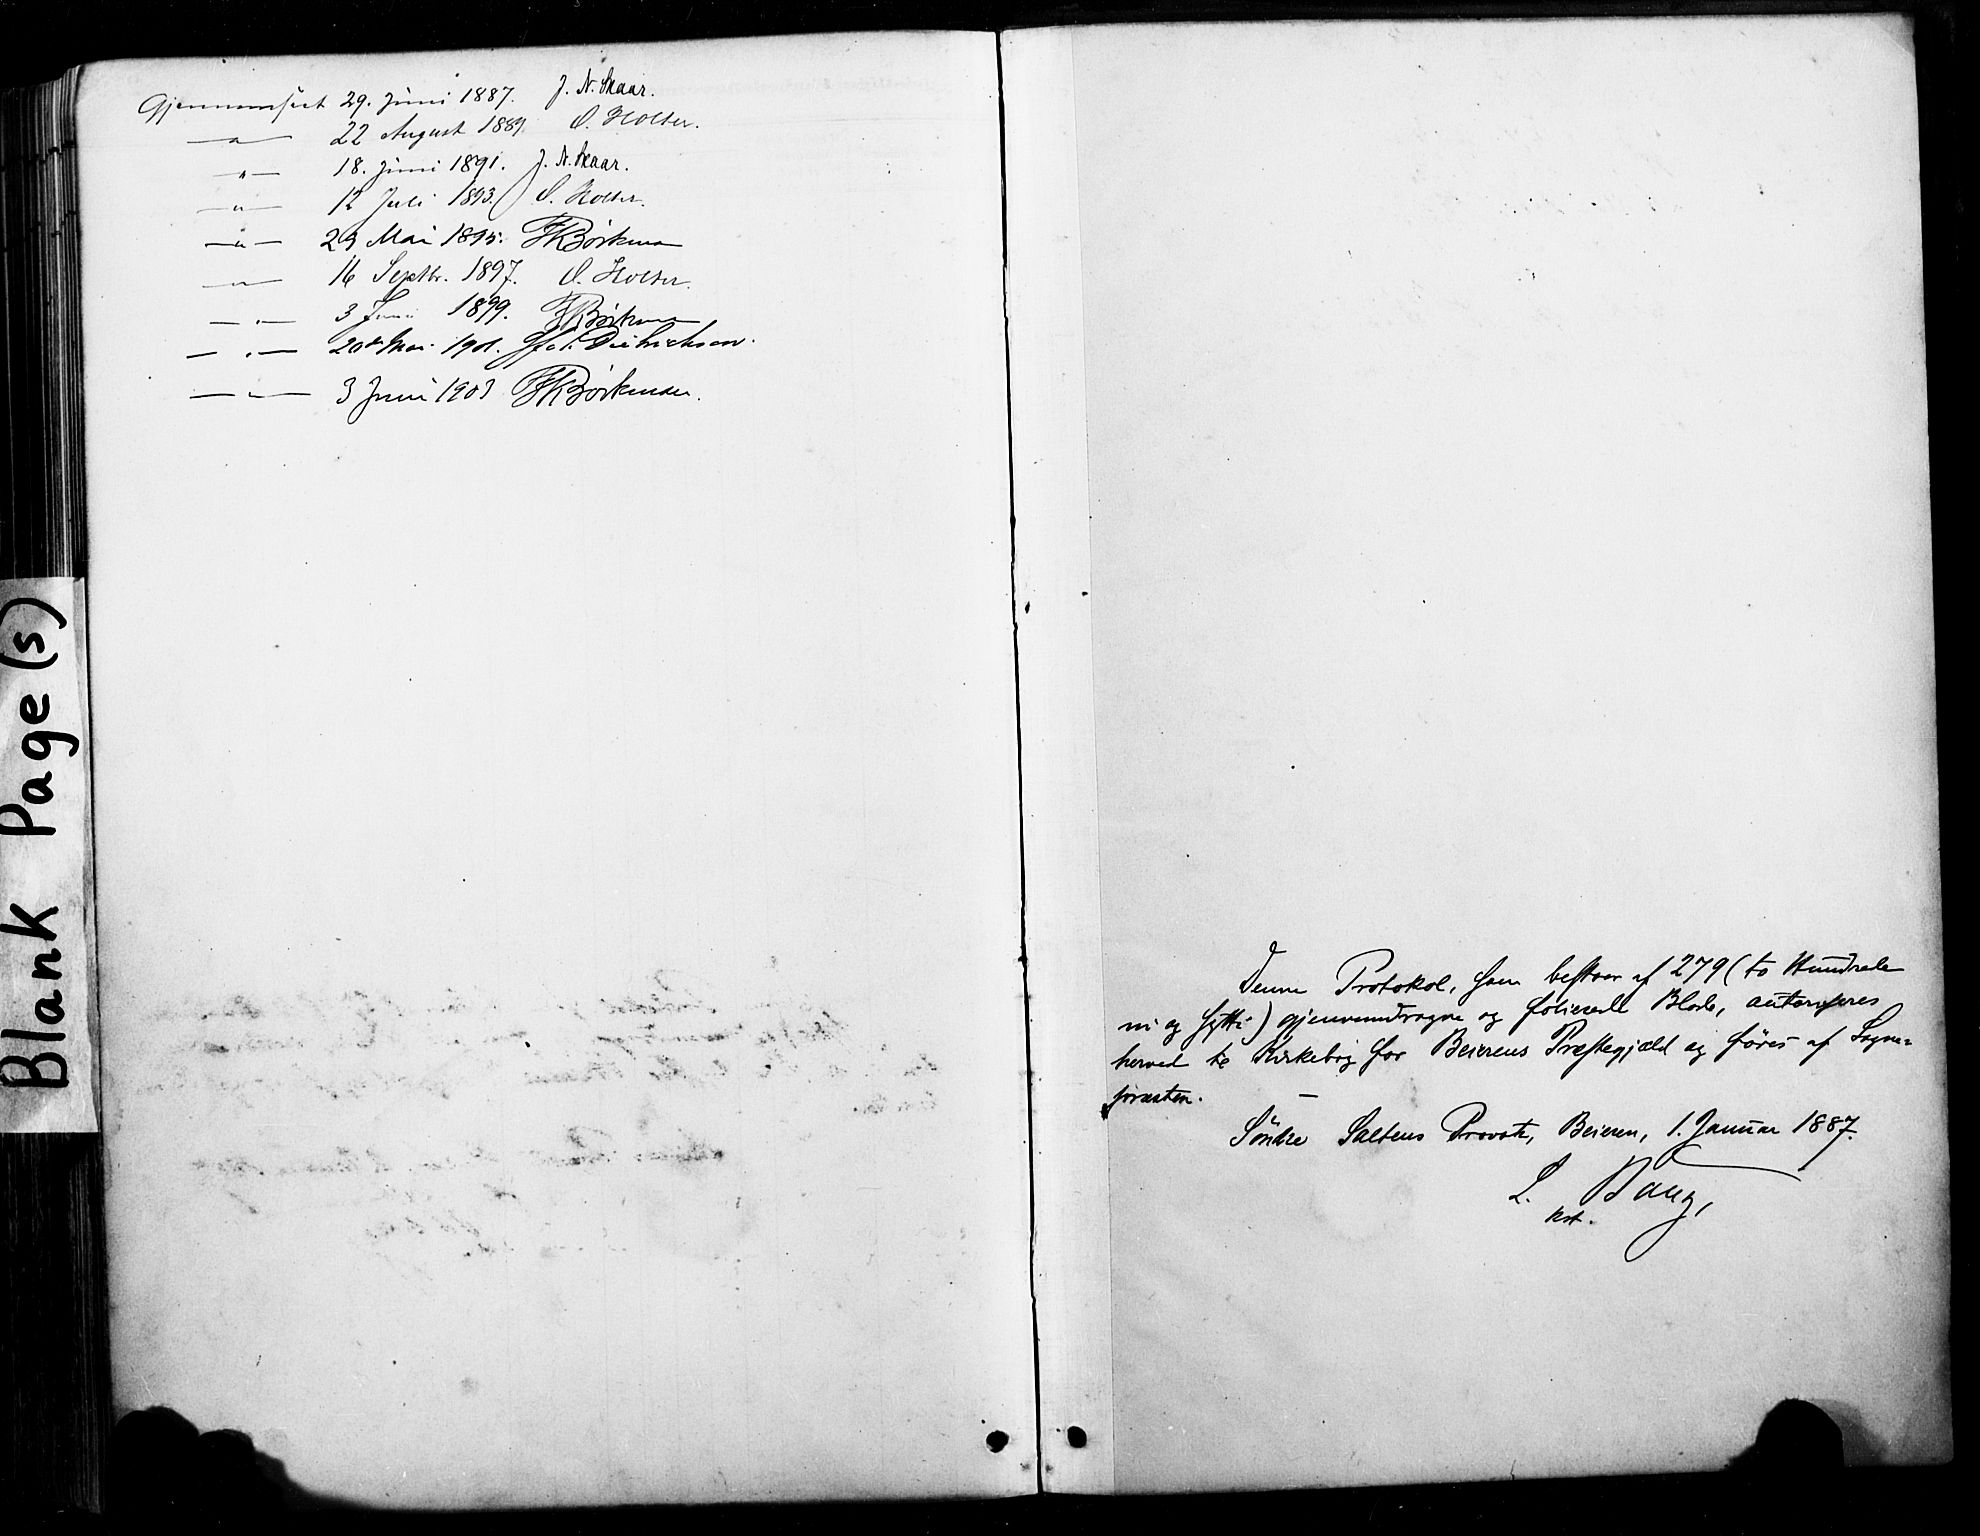 Gjennemseet 29. Juni 1887. J. N. Skaar.
—„— 22 August 1889. O. Holter.
—„— 18. Juni 1891. J. N. Skaar.
—„— 12 Juli 1893. O. Holter.
—„— 29 Mai 1895.
—„— 16 Septbr. 1897. O. Holter.
—„— 3 Juni 1899.
—„— 20de Mai 1901. Dietrichson.
—„— 3 Juni 1903
Blank Page(s)
Denne Protokol, som bestaar af 279 (to Hundrede
ni og sytti) gjennemdragne og folierede Blade, autoriseres
herved til Kirkebog for Beierens Præstegjæld og føres af Sogne=
præsten. —
Søndre Saltens Provsti, Beieren, 1. Januar 1887.
L. Bang,
kst.